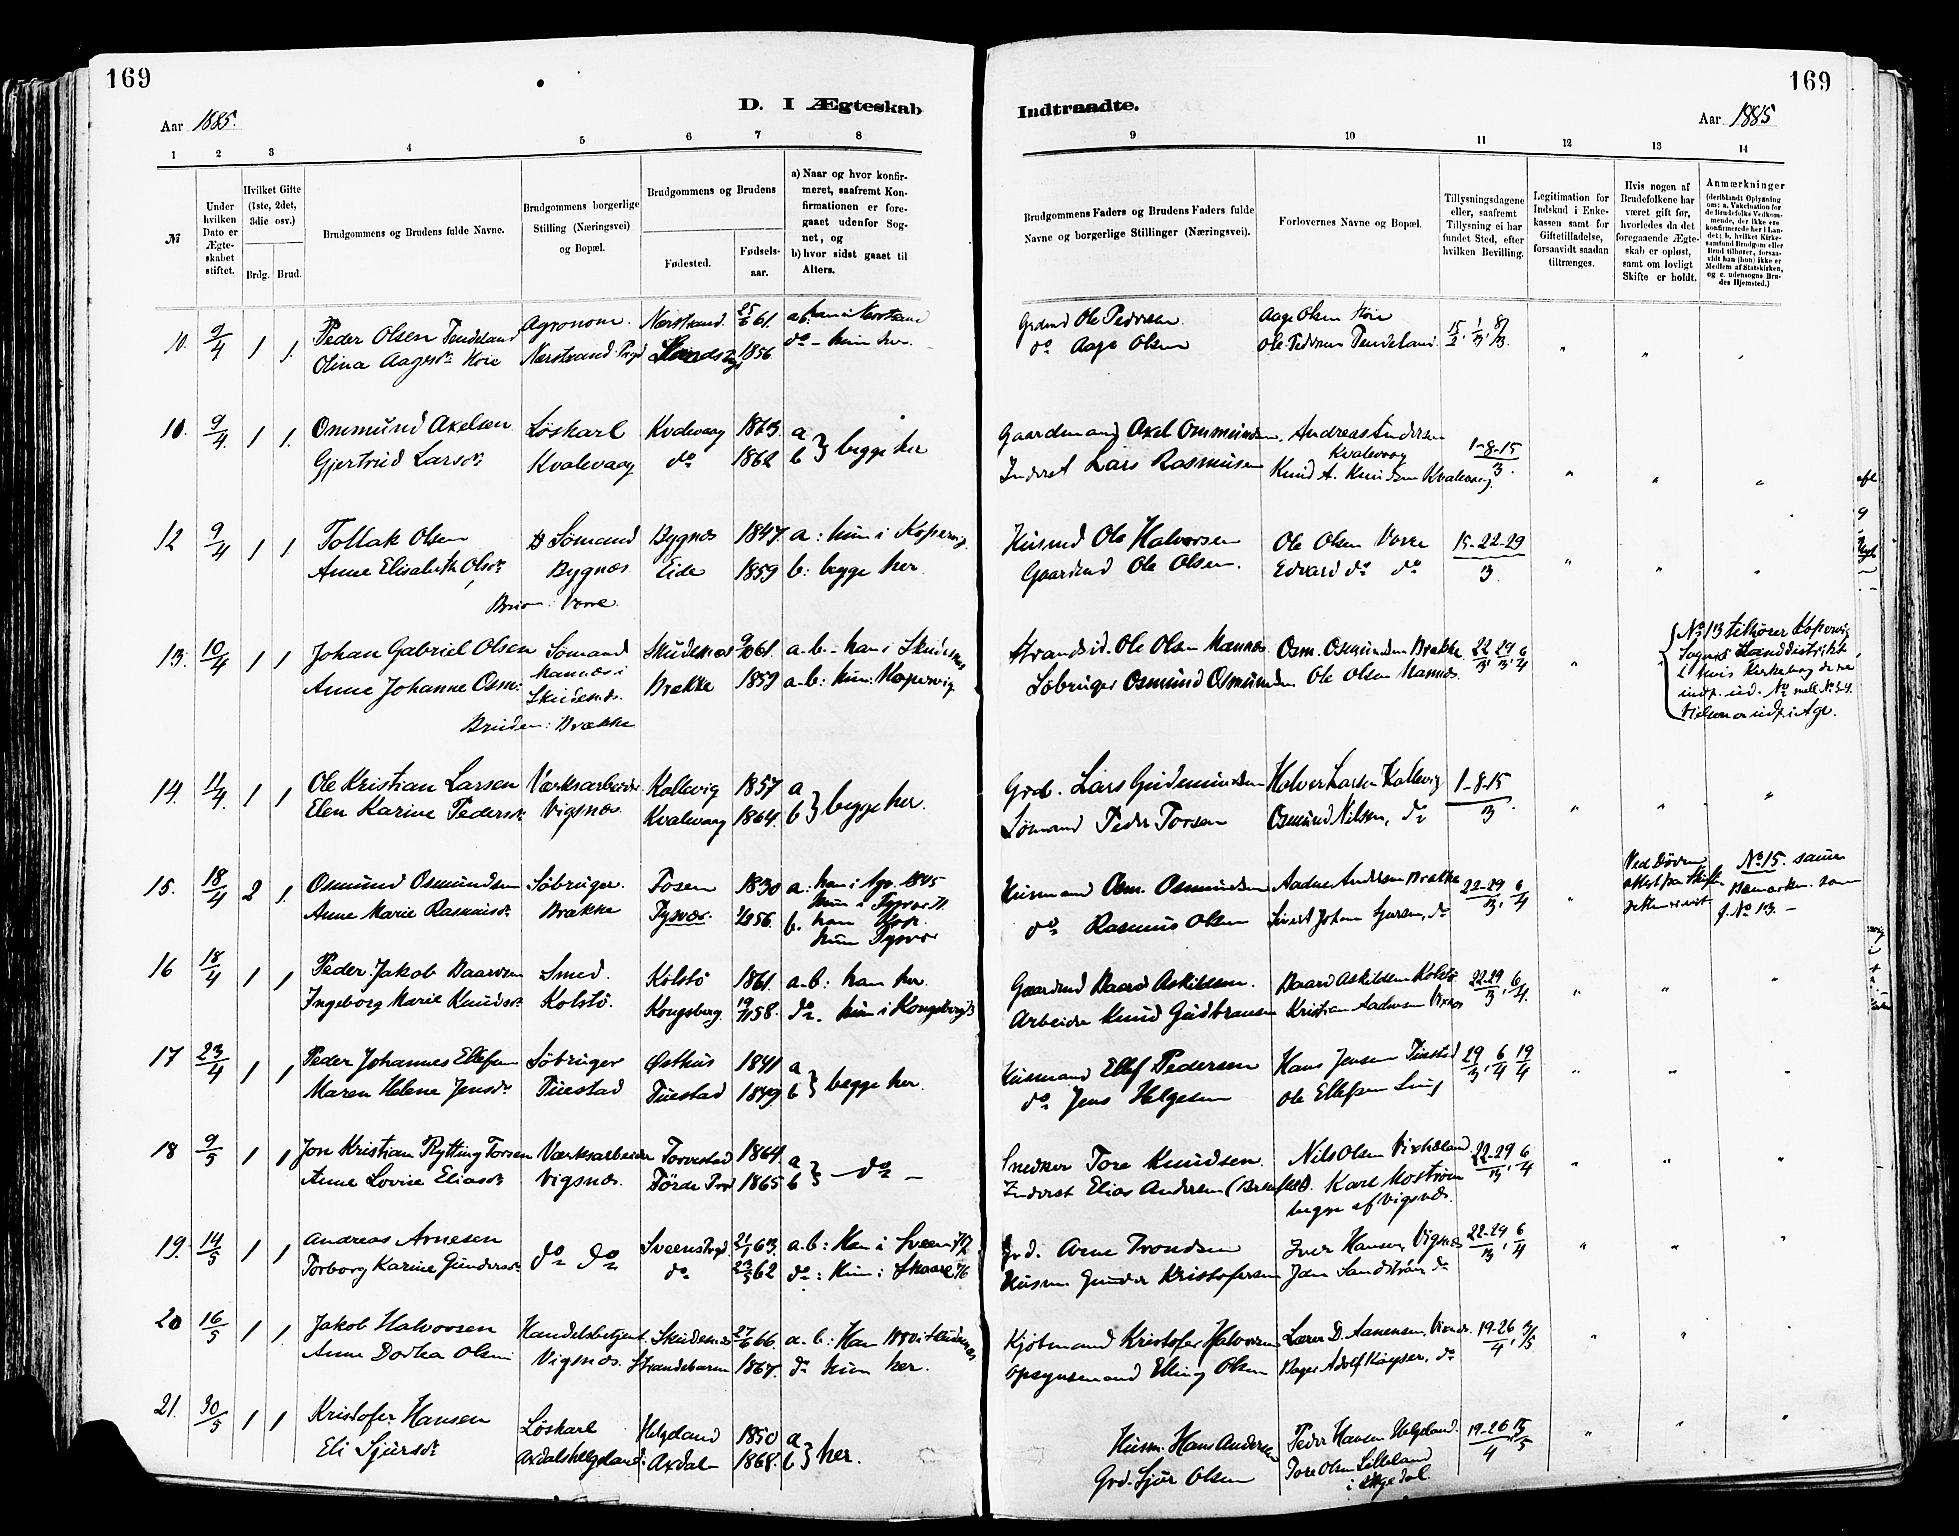 169
169
D. I Ægteskab Indtraadte.
Aar 1885.
Aar 1885
1 2 3 4 5 6 7 8 9 10 11 12 13 14
№
Under hvilken Dato er Ægteskabet stiftet.
Hvilket Gifte (1ste, 2det, 3die osv.)
Brdg. Brud.
Brudgommens og Brudens fulde Navne.
Brudgommens borgerlige Stilling (Næringsvei) og Bopæl.
Brudgommens og Brudens
Fødested.
Fødselsaar.
a) Naar og hvor konfirmeret, saafremt Konfirmationen er foregaaet udenfor Sognet, og
b) hvor sidst gaaet til Alters.
Brudgommens Faders og Brudens Faders fulde Navne og borgerlige Stillinger (Næringsvei).
Forlovernes Navne og Bopæl.
Tillysningsdagene eller, saafremt Tillysning ei har fundet Sted, efter hvilken Bevilling.
Legitimation for Indskud i Enkekassen samt for Giftetilladelse, forsaavidt saadan tiltrænges.
Hvis nogen af Brudefolkene har været gift før, hvorledes da det foregaaende Ægteskab er opløst, samt om lovligt Skifte er holdt.
Anmærkninger (deriblandt Oplysning om: a. Vakcination for de Brudefolks Vedkommende, der ikke ere konfirmerede her i Landet; b. hvilket Kirkesamfund Brudgom eller Brud tilhører, forsaavidt han (hun) ikke er Medlem af Statskirken, og c. udensogns Brudes Hjemsted.)
10. 9/4 1 1. Peder Olsen Tendeland Agronom. Nærstrand 25/6 61. a.b. han i Nærstrand Grdmd Ole Pedersen. Aage Olsen Høie 15/2, 1/3, 8/3.
Olina Aagesdr. Høie Nærstrand Prgd 1856 do - hun her. do Aage Olsen Ole Pedersen Tendeland.
10. 9/4 1 1. Ommund Axelsen Løskarl Kvalevaag 1863 a Gaardmand Axel Ommundsen, Andreas Andersen Kvalevaag 1-8-15/3.
Gjertrud Larsdr. Kvalevaag do 1862 b } begge her Inderst Lars Rasmusen Knud A. Knudsen Kvalevaag.
12 9/4 1 1 Tollak Olsen Sømand Bygnæs 1847 a: hun i Kopervig. Husmd Ole Halvorsen Ole Olsen Vorre 15-22-29/3.
Anne Elisabeth Olsdr. Bygnæs Eide 1859 b: begge her. Gaardmd Ole Olsen. Edvard do do
Bruden: Vorre.
13. 10/4 1 1 Johan Gabriel Olsen Sømand Skudenæs 9/10 61. a-b - han i Skudesnæs Strands. Ole Olsen Mannæs Osm. Osmundsen Brække 22/3, 29/3, 6/4
Anne Johanne Osm: Mannæs i Skudesnæs. Brække 1859 a-b: hun: Kopervig Søbruger Osmund Osmundsen Ole Olsen Mannæs.
Bruden: Brække
No 13 tilhører Kopervig Sogns Landdistrikt i hvis Kirkebog de ere indf. und. No mell. No 3-4.
14. 11/4. 1 1 Ole Kristian Larsen Værksarbeider Kallevig 1857 a Grdb. Lars Gudmundsen Halvor Larsen Kallevig 1-8-15/3.
Elen Karine Pedersdr. Vigsnæs. Kvalevaag 1864. b } begge her. Sømand Peder Torsen Osmund Nilsen, do
15. 18/4 2 1. Osmund Osmundsen Søbruger. Fosen 1830 a: han i Ag. 1845 Husmand Osm. Osmundsen Aadne Andersen Brække 22-29/3, 6/4
Anne Marie Rasmusdr. Brække Tysvær. 56. hun i Tysvær do Rasmus Olsen Sivert Johan Sjursen, do
b. han Kop. hun Tysvær
Ved Døden
No 15. samme Bemærkn. som f. No 13. -
16 18/4 1 1 Peder Jakob Baardsen Smed. Kolstø 1861. a-b: han her. Gaardmd Baard Askildsen. Baard Askildsen Kolstø 22-29/3, 6/4.
Ingeborg Marie Knudsdr. Kolstø. Kongsberg 58. do. hun i Kongsberg Arbeider Knud Gudbransen Kristian Aadnesen Vixnæs
17 23/4 1 1 Peder Johannes Ellefsen Søbruger Østhus 1841 a Husmand Ellef Pedersen Hans Jensen Tuestad 29/3, 6/4 19/4
Maren Helene Jensdr. Tuestad Tuestad 1849 b } begge her. do Jens Helgesen Ole Ellefsen
18 9/5 1 1 Jon Kristian Rytting Torsen Værksarbeider Torvestad 1864. a Snedker Tore Knudsen. Nils Olsen 22-29/3, 6/4
Anne Lovise Eliasdr. Vigsnæs. Førde Prgd 1865 b } - do - Inderst Elias Andersen Karl Mostrøm
begge af Vigsnæs.
19. 14/5 1 1 Andreas Arnesen do do Sveens Prgd 21/1 63. a-b: Han i Sveen Grd. Arne Trondsen Iver Hansen, Vigsnæs 22-29/3, 6/4
Torborg Karine Gundersdr. do 62 do: Hun i Skaare Husm Gunder Kristofersen Jon Sandstrøm do
20 16/5 1 1. Jakob Halvorsen Handelsbetjent. Skudesnæs 27/6 66. a-b: Han Kjøbmand Kristofer Halvorsen Lærer D. Aanensen, 19-26/4, 3/5
Anne Dorthea Olsen Vigsnæs. Strandebarm 1867. do hun her. Opsynsmand Elling Olsen Bager Adolf Køyser, do
21. 30/5 1 1 Kristofer Hansen Løskarl Helgeland 1850 a Husm. Hans Andersen Peder Hansen Helgeland. 19-26/4 15/5
Eli Sjursdr. Axdalshelgeland. Axdal 1868. b } her. Grd. Sjur Olsen Tore Olsen Lilleland